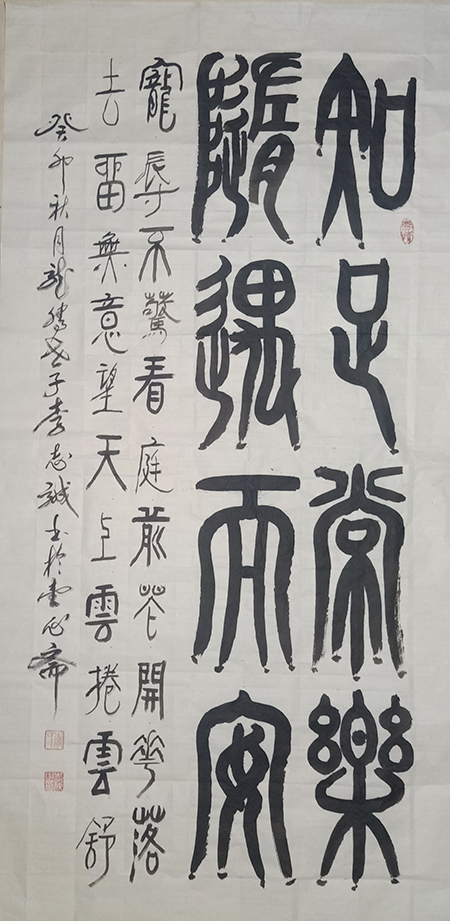 知足常樂
隨遇而安
寵辱不驚看庭前花開花落
去留無意望天上雲捲雲舒
癸卯秋月龍騰居子李志誠書於雲心齋